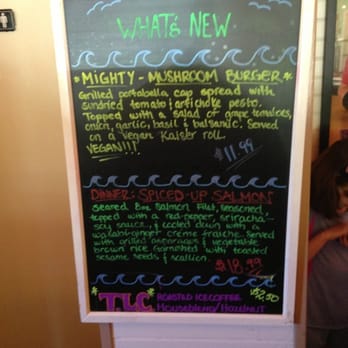 WHAT'S NEW
*MIGHTY-MUSHROOM BURGER*
Grilled portabella cap spread with
sundried tomato & artichoke pesto.
Topped with a salad of grape tomatoes,
onion, garlic, basil & balsamic. Served
on a vegan Kaiser roll.
VEGAN!!!
$11.99
DINNER: SPICED-UP SALMON
Seared 8oz Salmon Filet, seasoned,
topped with a red-pepper, sriracha-
soy sauce, & cooled down with a
wasabi-ginger crème fraiche. Served
with grilled asparagus & vegetable
brown rice. Garnished with toasted
sesame seeds & scallion.
$18.99
*T.L.C* ROASTED ICECOFFEE
Houseblend/Hazelnut
$2.50